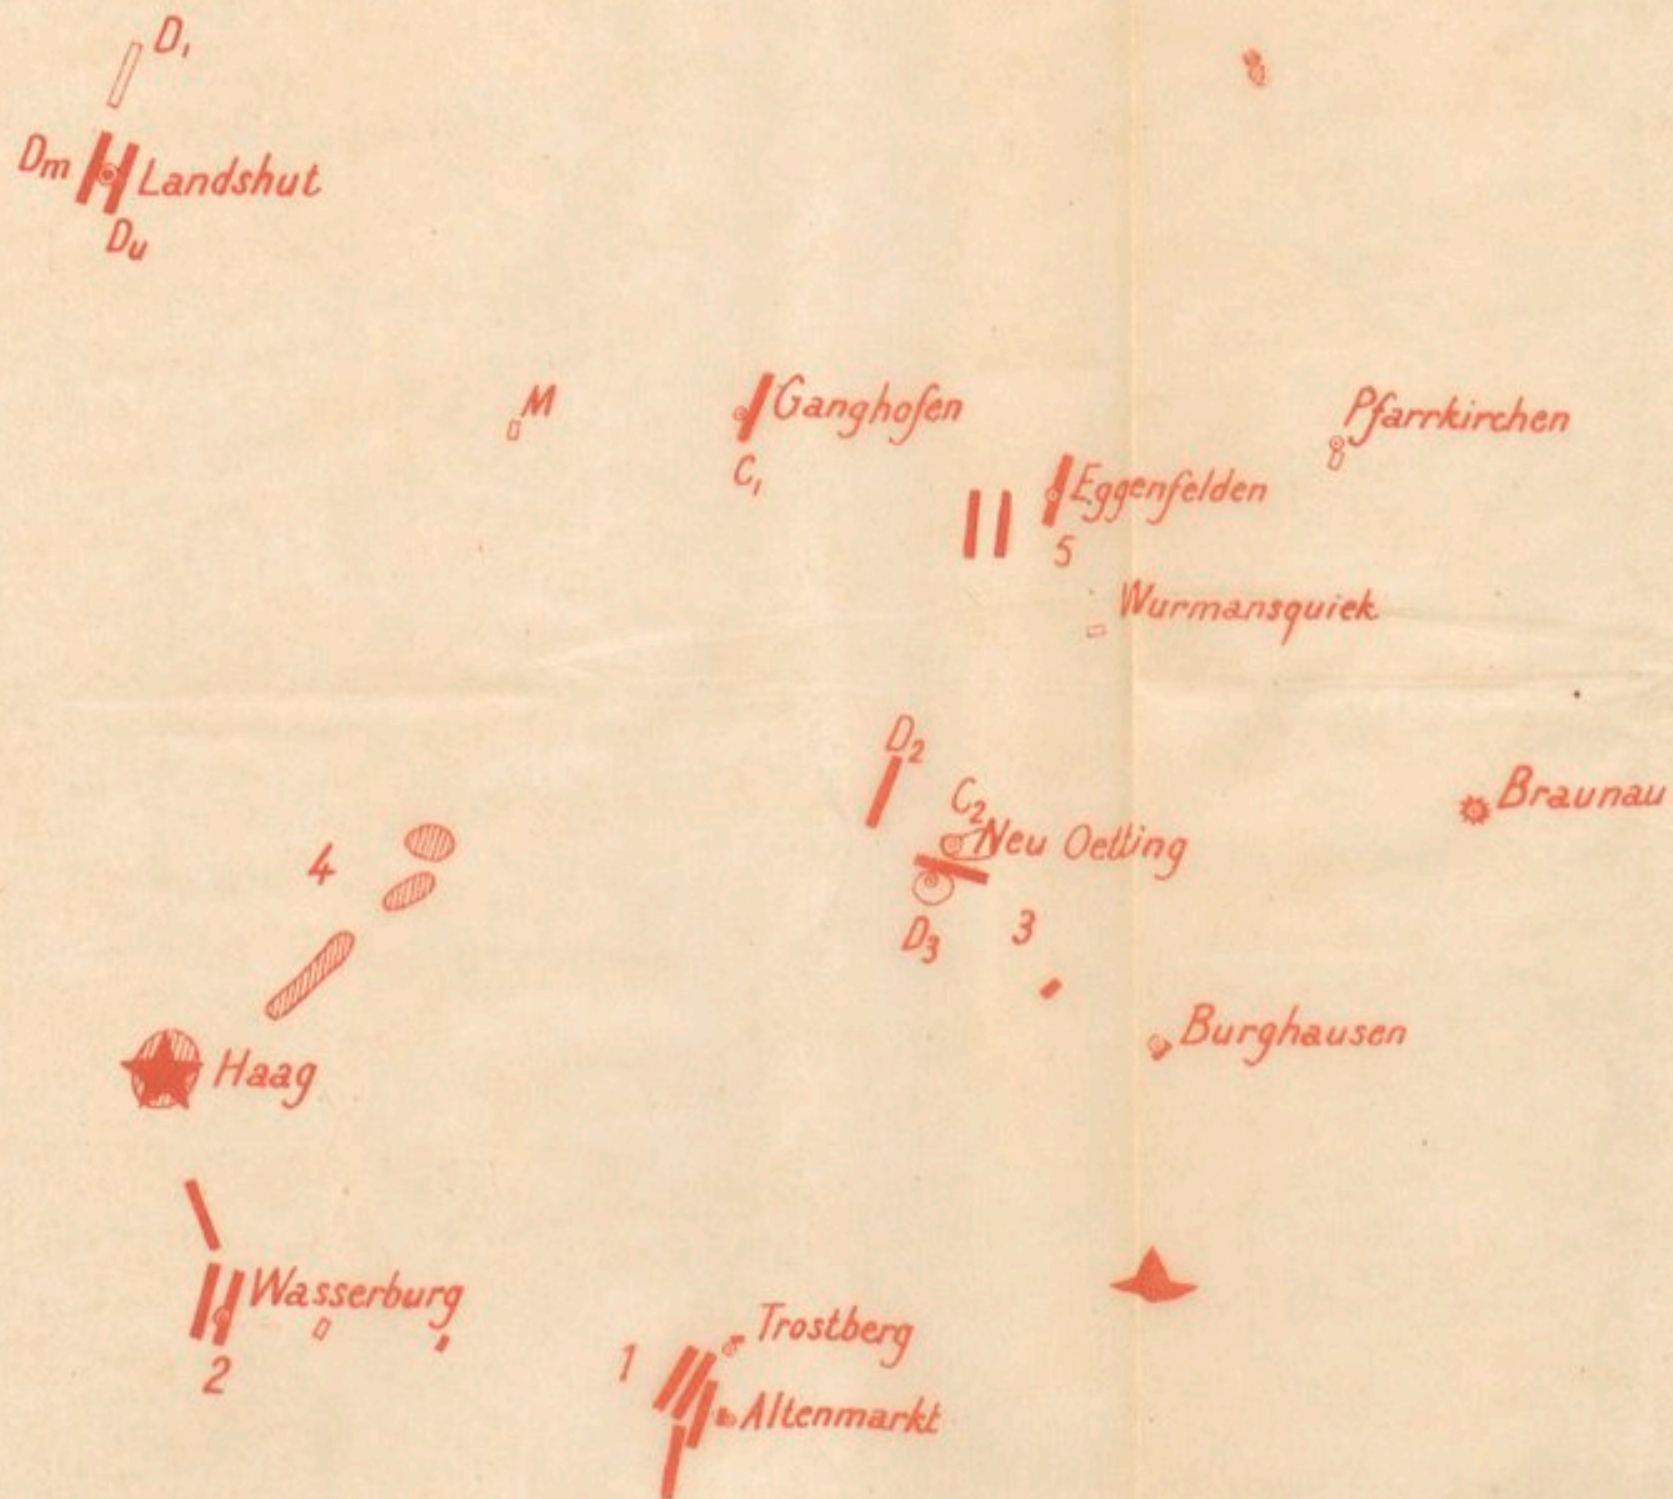 D₁
Dm
Landshut
Du
M
Ganghofen
C₁
Pfarrkirchen
Eggenfelden
5
Wurmansquiek
D₂
C₂
Neu Oetting
Braunau
4
D₃
3
Burghausen
Haag
Wasserburg
2
Trostberg
1
Altenmarkt